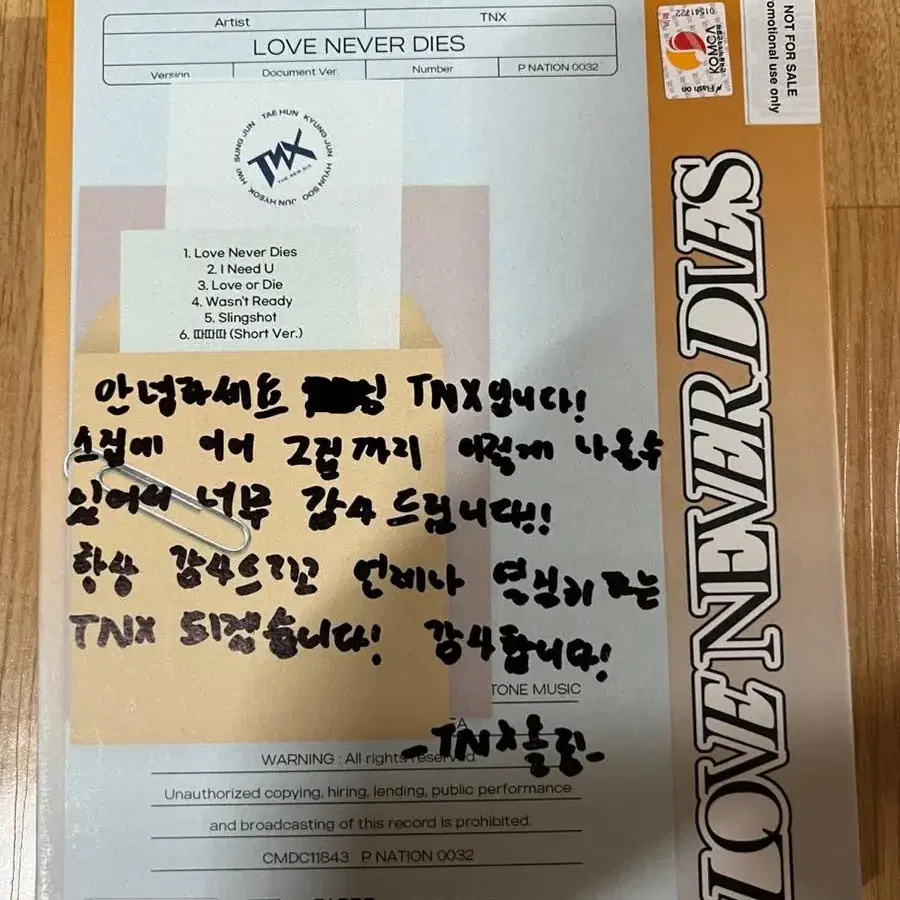 Artist TNX
LOVE NEVER DIES
Version Document Ver. Number P NATION 0032
TAE HUN KYUNG JUN HYUN SOO JUN HYEOK HWI SUNG JUN
TNX
THE NEW SIX
1. Love Never Dies
2. I Need U
3. Love or Die
4. Wasn't Ready
5. Slingshot
6. 따따따 (Short Ver.)
안녕하세요 님 TNX입니다!
소집에 이어 그립까지 이렇게 나올수
있어서 너무 감사드립니다!!
항상 감사드리고 언제나 열심히 하는
TNX 되겠습니다! 감사합니다!
-TNX올림-
TONE MUSIC
WARNING : All rights reserved.
Unauthorized copying, hiring, lending, public performance
and broadcasting of this record is prohibited.
CMDC11843 P NATION 0032
LOVE NEVER DIES
01541722
KOMCA
Flash on
NOT FOR SALE
promotional use only